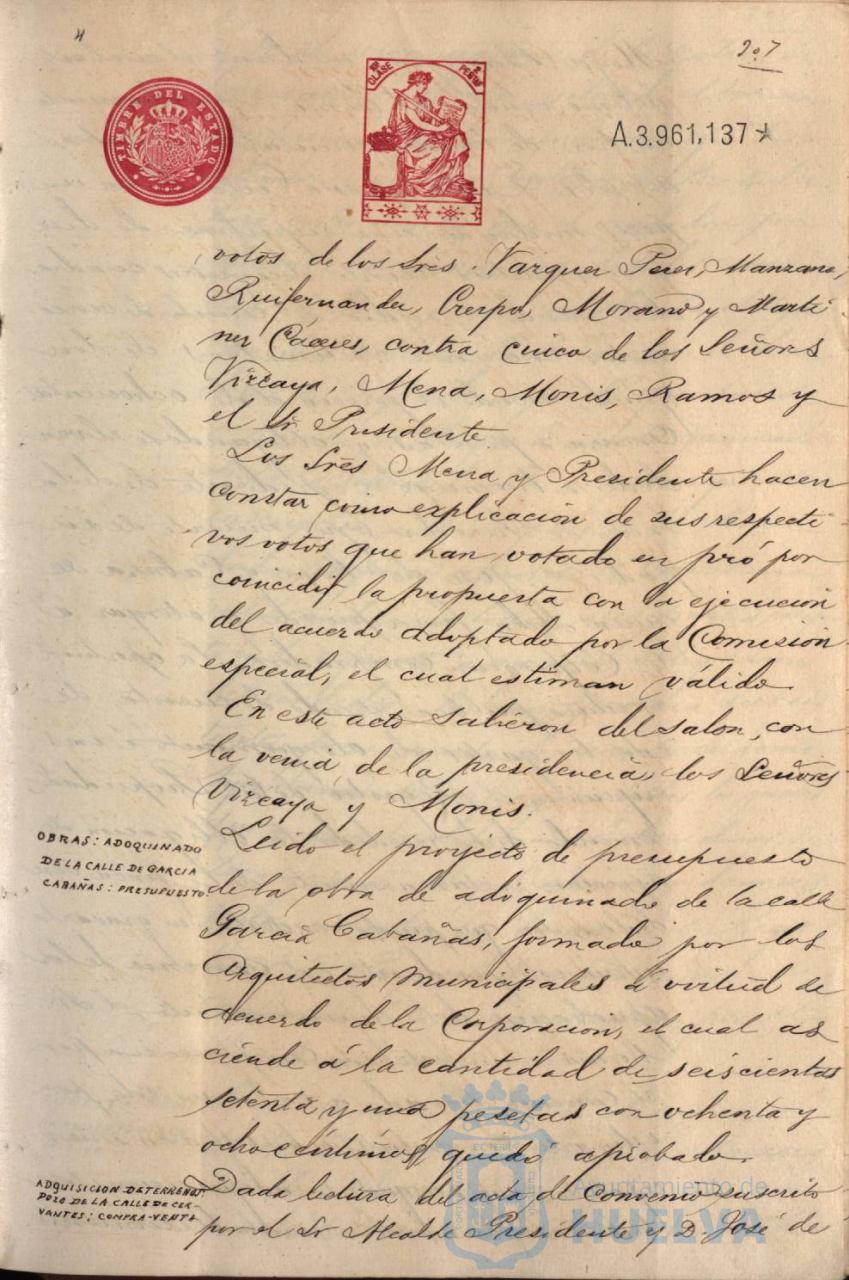 4
207
TIMBRE DEL ESTADO
CLASE
PESETAS
A.3.961,137
votos de los Sres. Vazquez Perez, Manzano,
Ruifernandez, Crespo, Morano y Marti-
nez Cáceres, contra cinco de los Señores
Vizcaya, Mena, Monis, Ramos y
el Sr Presidente.
Los Sres Mena y Presidente hacen
constar como explicación de sus respecti-
vos votos que han votado en pró por
coincidir la propuesta con la ejecución
del acuerdo adoptado por la Comisión
especial, el cual estiman válido.
En este acto salieron del salon, con
la venia de la presidencia, los Señores
Vizcaya y Monis.
OBRAS: ADOQUINADO
DE LA CALLE DE GARCIA
CABAÑAS: PRESUPUESTO.
Leido el proyecto de presupuesto
de la obra de adoquinado de la calle
Garcia Cabañas, formado por los
Arquitectos Municipales á virtud de
acuerdo de la Corporación, el cual as-
ciende á la cantidad de seiscientas
setenta y una pesetas con ochenta y
ocho céntimos, quedó aprobado.
ADQUISICION DE TERRENOS:
POZO DE LA CALLE DE CER-
VANTES: COMPRA-VENTA
Dada lectura del acta de Convenio suscrito
por el Sr Alcalde Presidente y D. José de
Ayuntamiento de
HUELVA